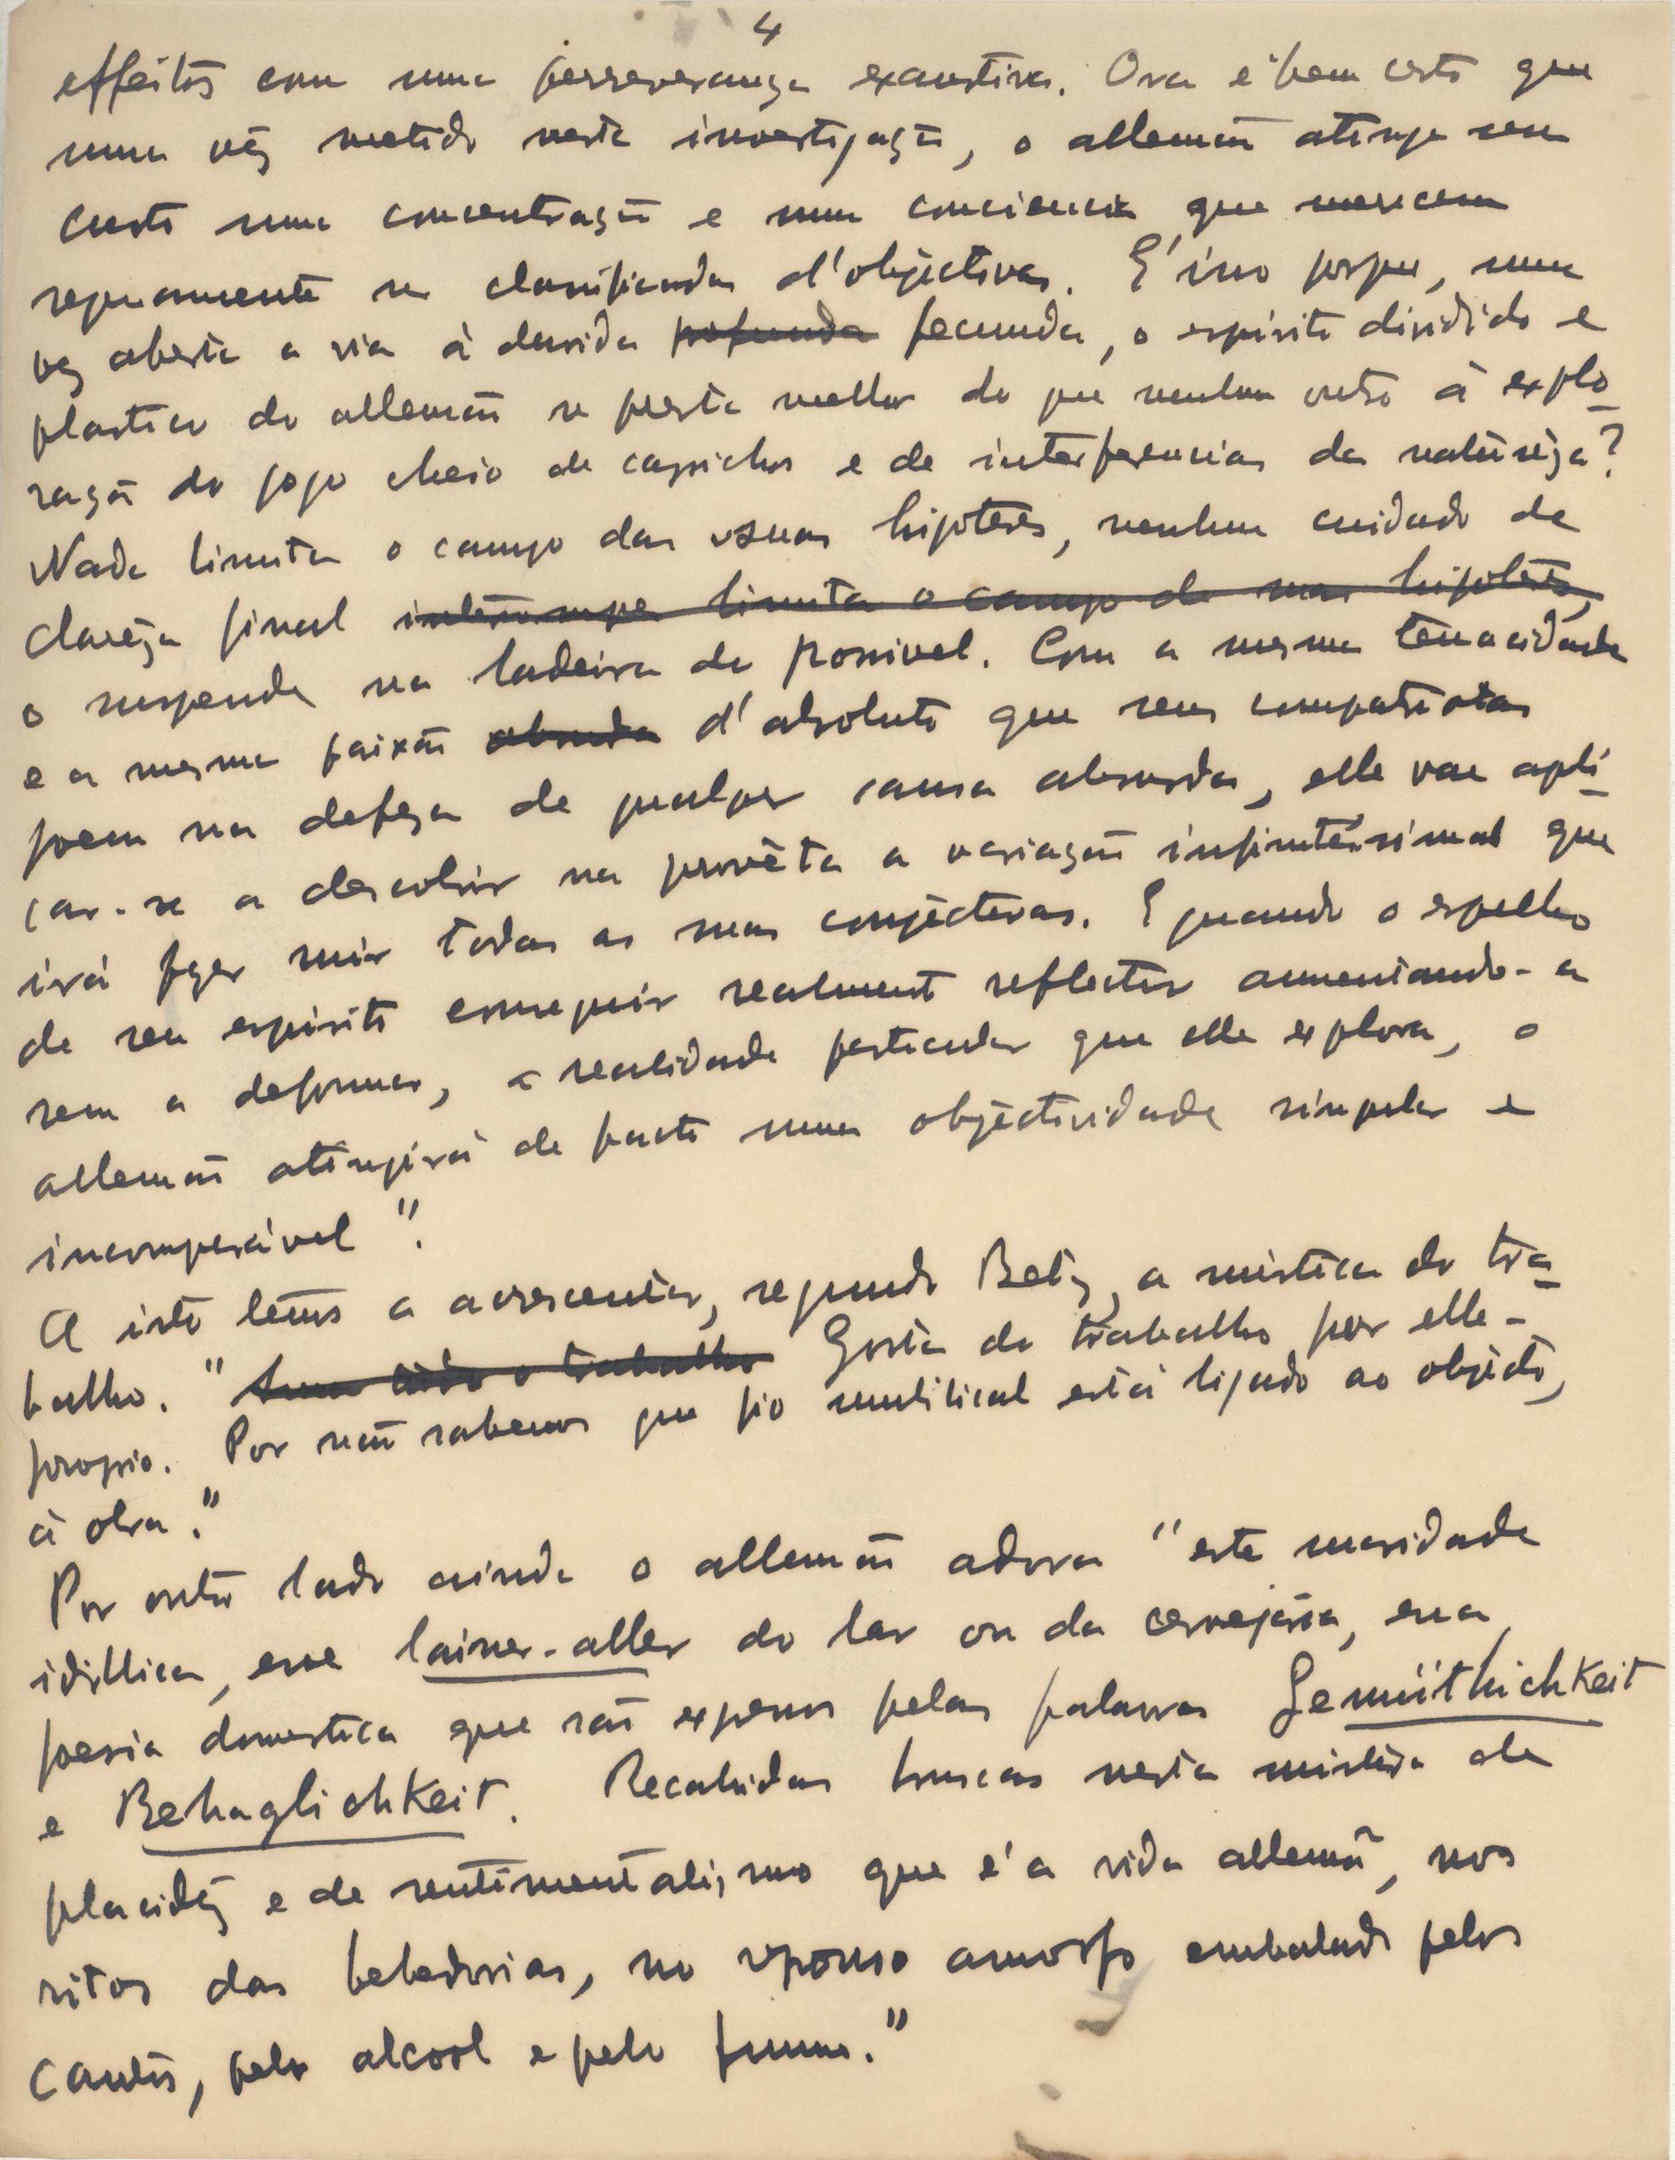 4
effeitos com uma perseverança exaustiva. Ora é bem certo que
uma vez metido nesta investigação, o allemão atinge sem
custo uma concentração e uma conciencia que merecem
seguramente ser classificadas d'objectivas. E' isso porque, uma
vez aberta a via á duvida profunda fecunda, o espirito dividido e
plastico do allemão se presta melhor do que nenhum outro á explo-
ração do jogo cheio de caprichos e de interferencias da naturêza?
Nada limita o campo das suas hipoteses, nenhum cuidado de
clarêza final interrompe limita o campo de suas hipoteses,
o suspende na ladeira do possivel. Com a mesma tenacidade
e a mesma paixão absurda d'absoluto que seus compatriotas
poem na defeza de qualquer causa absurda, elle vae apli-
car-se a descobrir na provêta a variação infinitésimal que
irá fazer ruir todas as suas conjecturas. E quando o espelho
de seu espirito conseguir realmente reflectir aumentando-a
sem a deformar, a realidade particular que elle explora, o
allemão atingirá de facto uma objectividade singular e
incomparável".
A isto temos a acrescentar, segundo Betz, a mistica do tra-
balho. "Ama tudo o trabalho Gosta do trabalho por elle-
proprio. Por não sabemos que fio umbilical está ligado ao objécto,
á obra."
Por outro lado ainda o allemão adora "esta suavidade
idillica, esse laisser-aller do lar ou da cervejaria, essa
poesia domestica que são expressos pelas palavras Gemüthlichkeit
e Behaglichkeit. Recahidas bruscas nesta mistura de
placidez e de sentimentalismo que é a vida allemã, nos
ritos das bebedorias, no repouso amorfo embalado pelos
cantos, pelo alcool e pelo fumo."